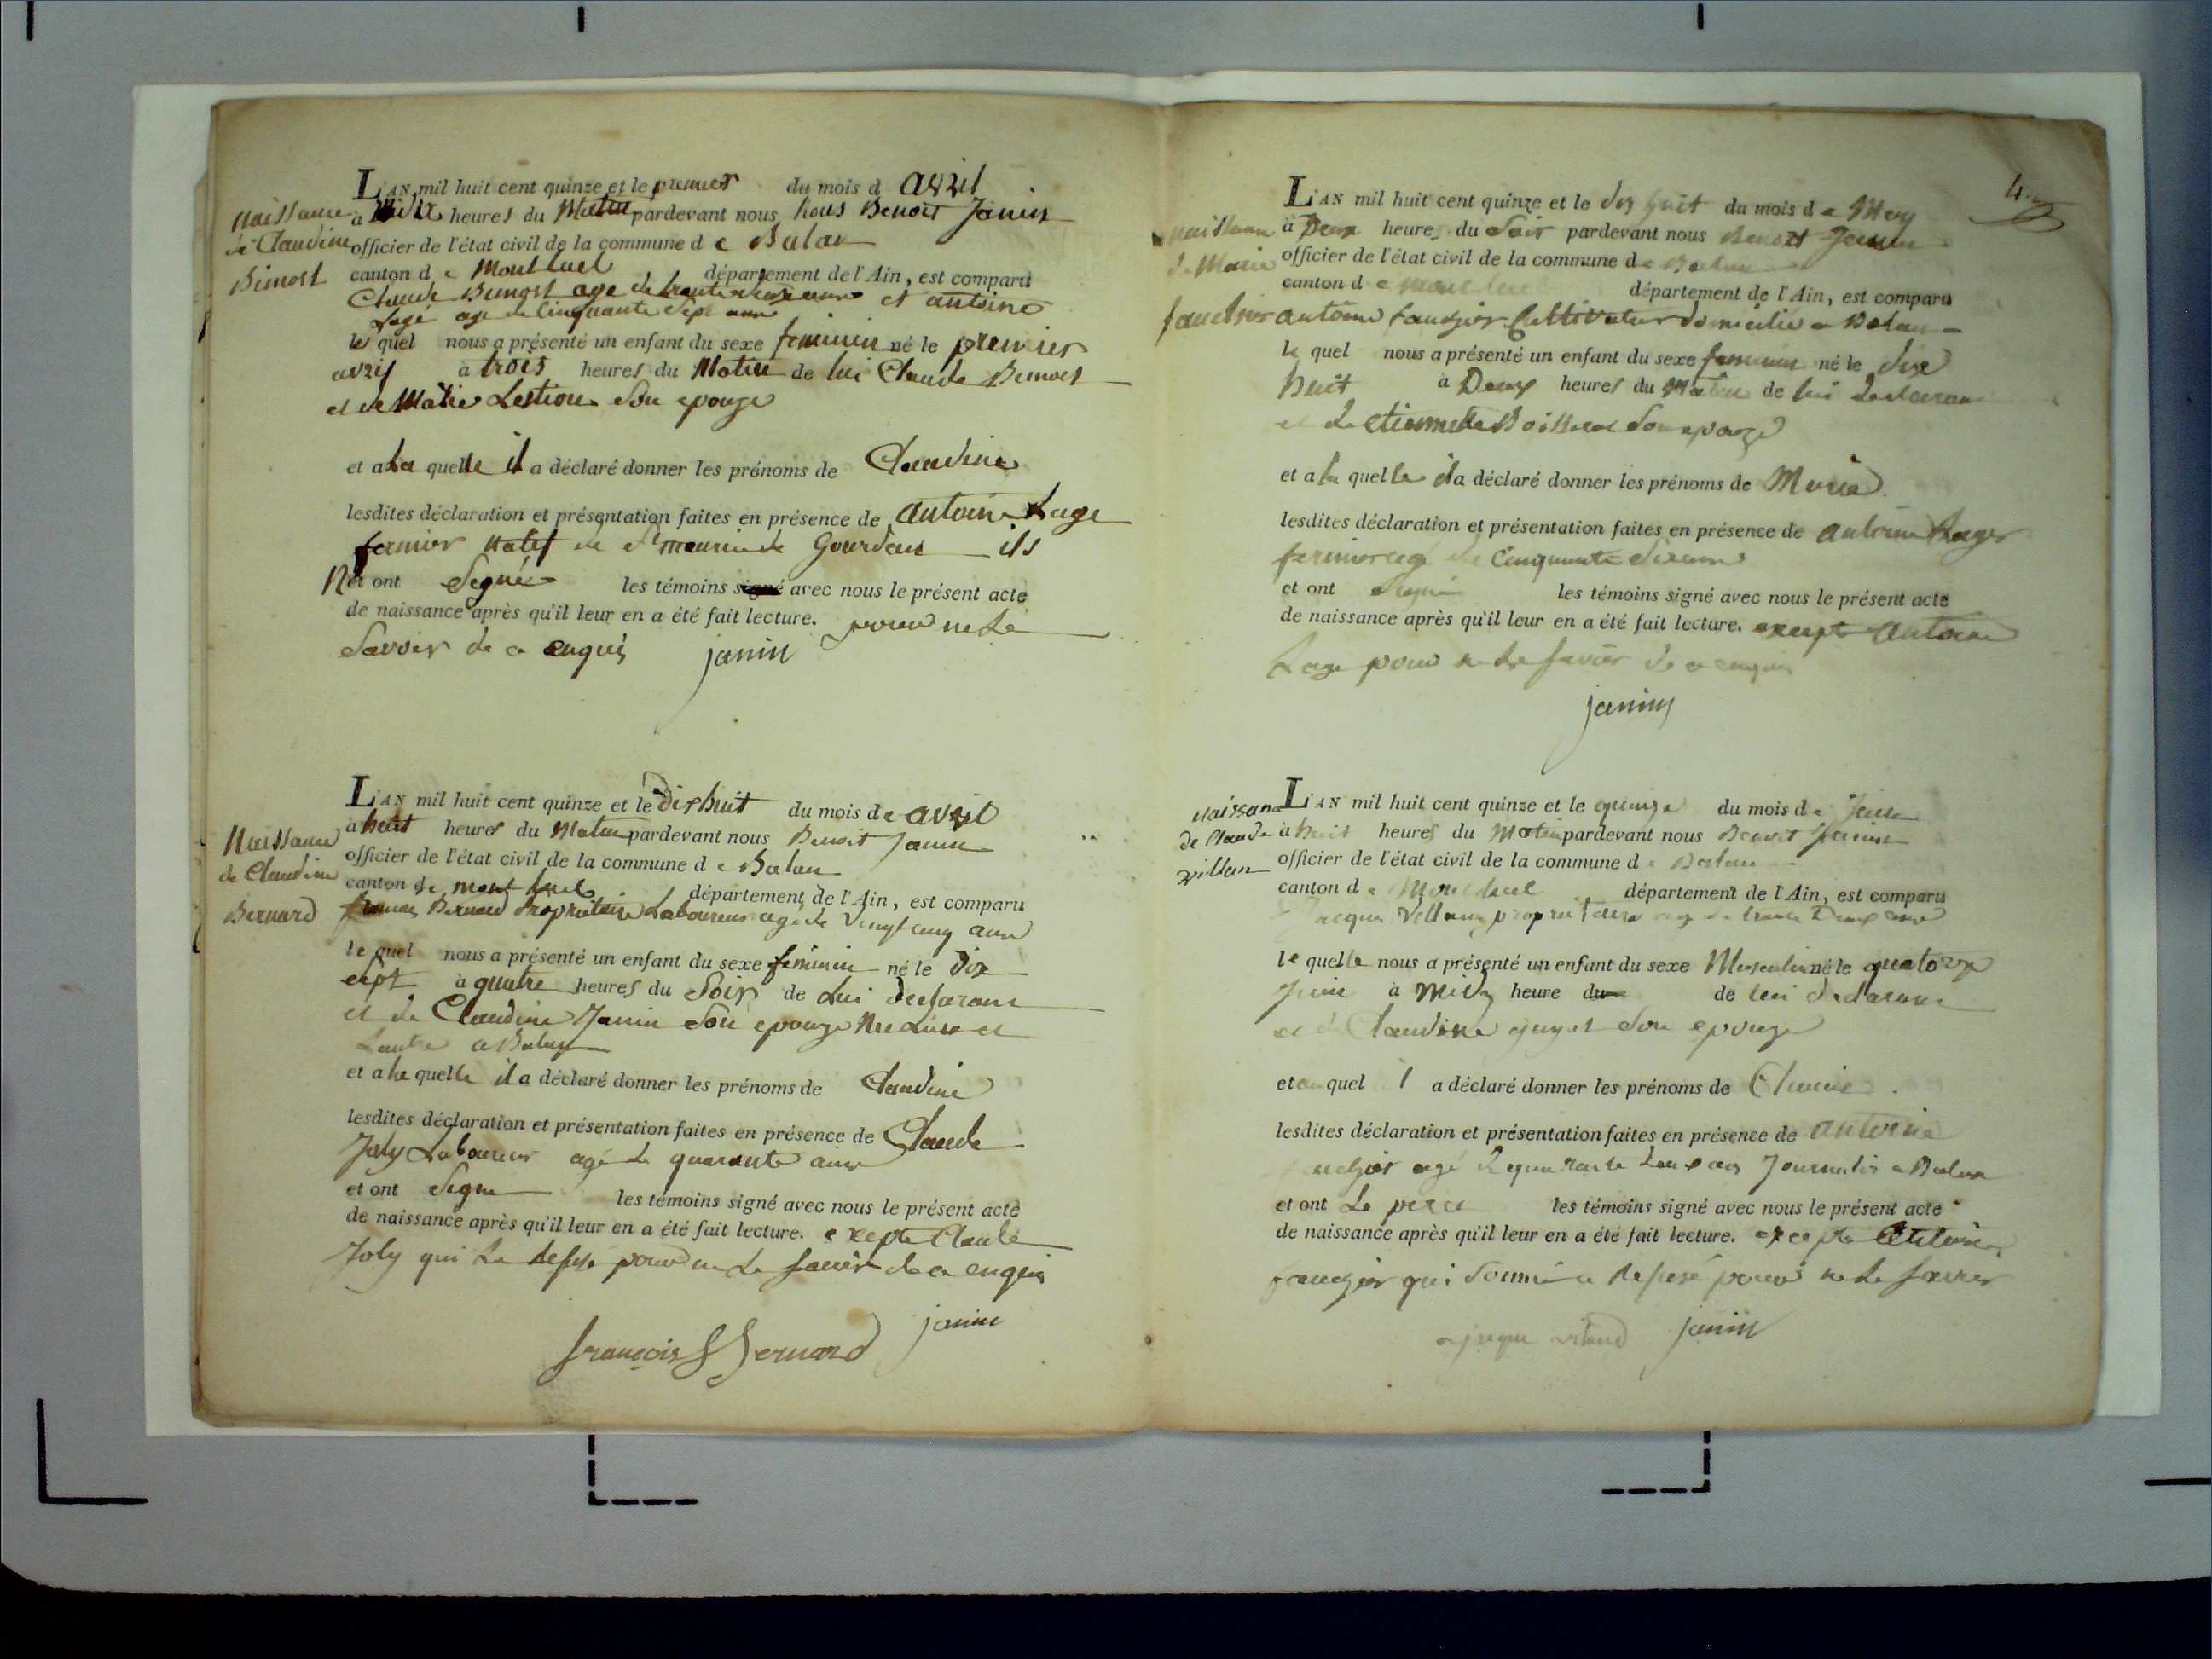 naissance
de Claudine
Bimost
L'AN mil huit cent quinze et le premier du mois d avril
a heures du Matin pardevant nous nous Benoit Janin
officier de l'état civil de la commune d e Balan
canton d e Montluel département de l'Ain, est comparu
Claude Bimost age de trente ans et antoine
Lagé age de Cinquante Sept ans
le quel nous a présenté un enfant du sexe feminin né le premier
avril à trois heures du Matin de lui Claude Bimost
et de Marie Lestion Son epouze
et a La quelle il a déclaré donner les prénoms de Claudine
lesdites déclaration et présentation faites en présence de antoine Lage
fermier natif de St maurice de Gourdans ils
N et ont Signé les témoins signé avec nous le présent acte
de naissance après qu'il leur en a été fait lecture. pour ne Le
Savoir de ce enquis janin
Naissance
de Claudine
Bernard
L'AN mil huit cent quinze et le Dixhuit du mois de avril
à huit heures du Matin pardevant nous Benoit Janin
officier de l'état civil de la commune d e Balan
canton de mont luel département de l'Ain, est comparu
francois Bernard Propriétaire Laboureur age de Vingt cinq ans
le quel nous a présenté un enfant du sexe feminin né le Dix
sept à quatre heures du Soir de Lui declarant
et de Claudine Janin Son epouze
a Balan
et a la quelle il a déclaré donner les prénoms de Claudine
lesdites déclaration et présentation faites en présence de Claude
Joly Laboureur agé de quarante ans
et ont Signe les témoins signé avec nous le présent acte
de naissance après qu'il leur en a été fait lecture. excepté Claude
Joly qui La refusé pour ne Le Savoir de ce enquis
françois Bernard janin
4
naissance
de Marie
fauchier
L'AN mil huit cent quinze et le dix huit du mois d e May
à Deux heures du Soir pardevant nous Benoit Janin
officier de l'état civil de la commune d e Balan
canton d e Montluel département de l'Ain, est comparu
antoine faucher Cultivateur domicilié a Balan
le quel nous a présenté un enfant du sexe feminin né le dix
huit à Deux heures du Matin de lui declarant
et de etiennette Son epouze
et a la quelle il a déclaré donner les prénoms de Marie
lesdites déclaration et présentation faites en présence de antoine Lager
fermier agé de Cinquante Six ans
et ont Signé les témoins signé avec nous le présent acte
de naissance après qu'il leur en a été fait lecture. except antoine
Lage pour ne Le Savoir de ce enquis
janin
naissance
de Claude
villan
L'AN mil huit cent quinze et le quinze du mois de Juin
à huit heures du Matin pardevant nous Benoit Janin
officier de l'état civil de la commune d e Balan
canton d e Montluel département de l'Ain, est comparu
Jacques Villan proprietaire age de trente Deux ans
le quelle nous a présenté un enfant du sexe Masculin né le quatorze
Juin à Midy heure du de lui declarant
et de Claudine guyot Son epouze
et au quel il a déclaré donner les prénoms de Claude
lesdites déclaration et présentation faites en présence de antoine
fauchier agé de quarante Deux ans Journalier a Balan
et ont Le pere les témoins signé avec nous le présent acte
de naissance après qu'il leur en a été fait lecture. excepte antoine
fauchier qui Sommé a refusé pour ne Le Savoir
janin